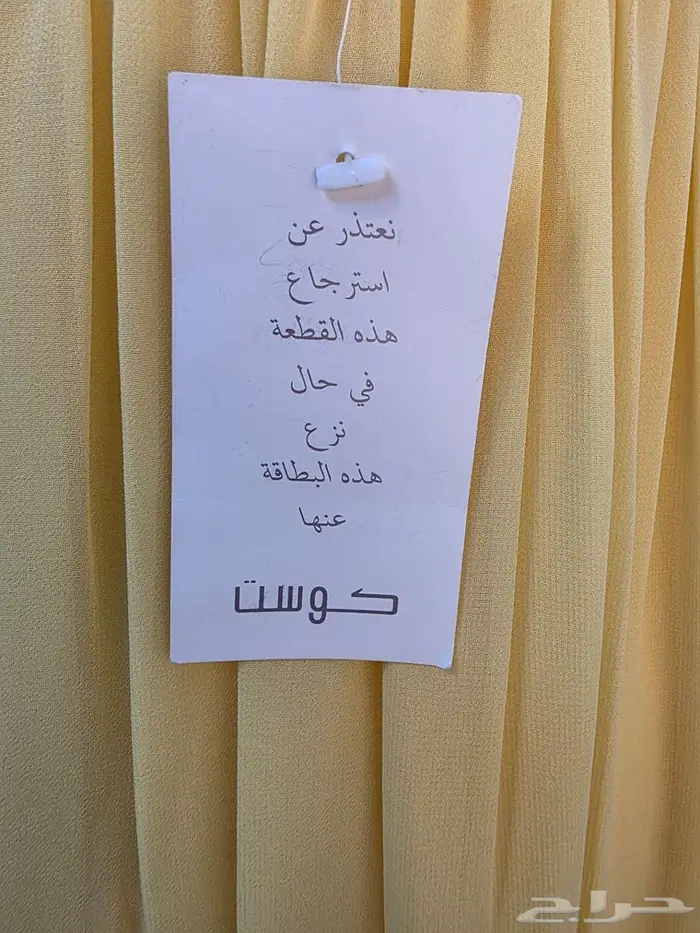 نعتذر عن
استرجاع
هذه القطعة
في حال
نزع
هذه البطاقة
عنها
كوست
حراج